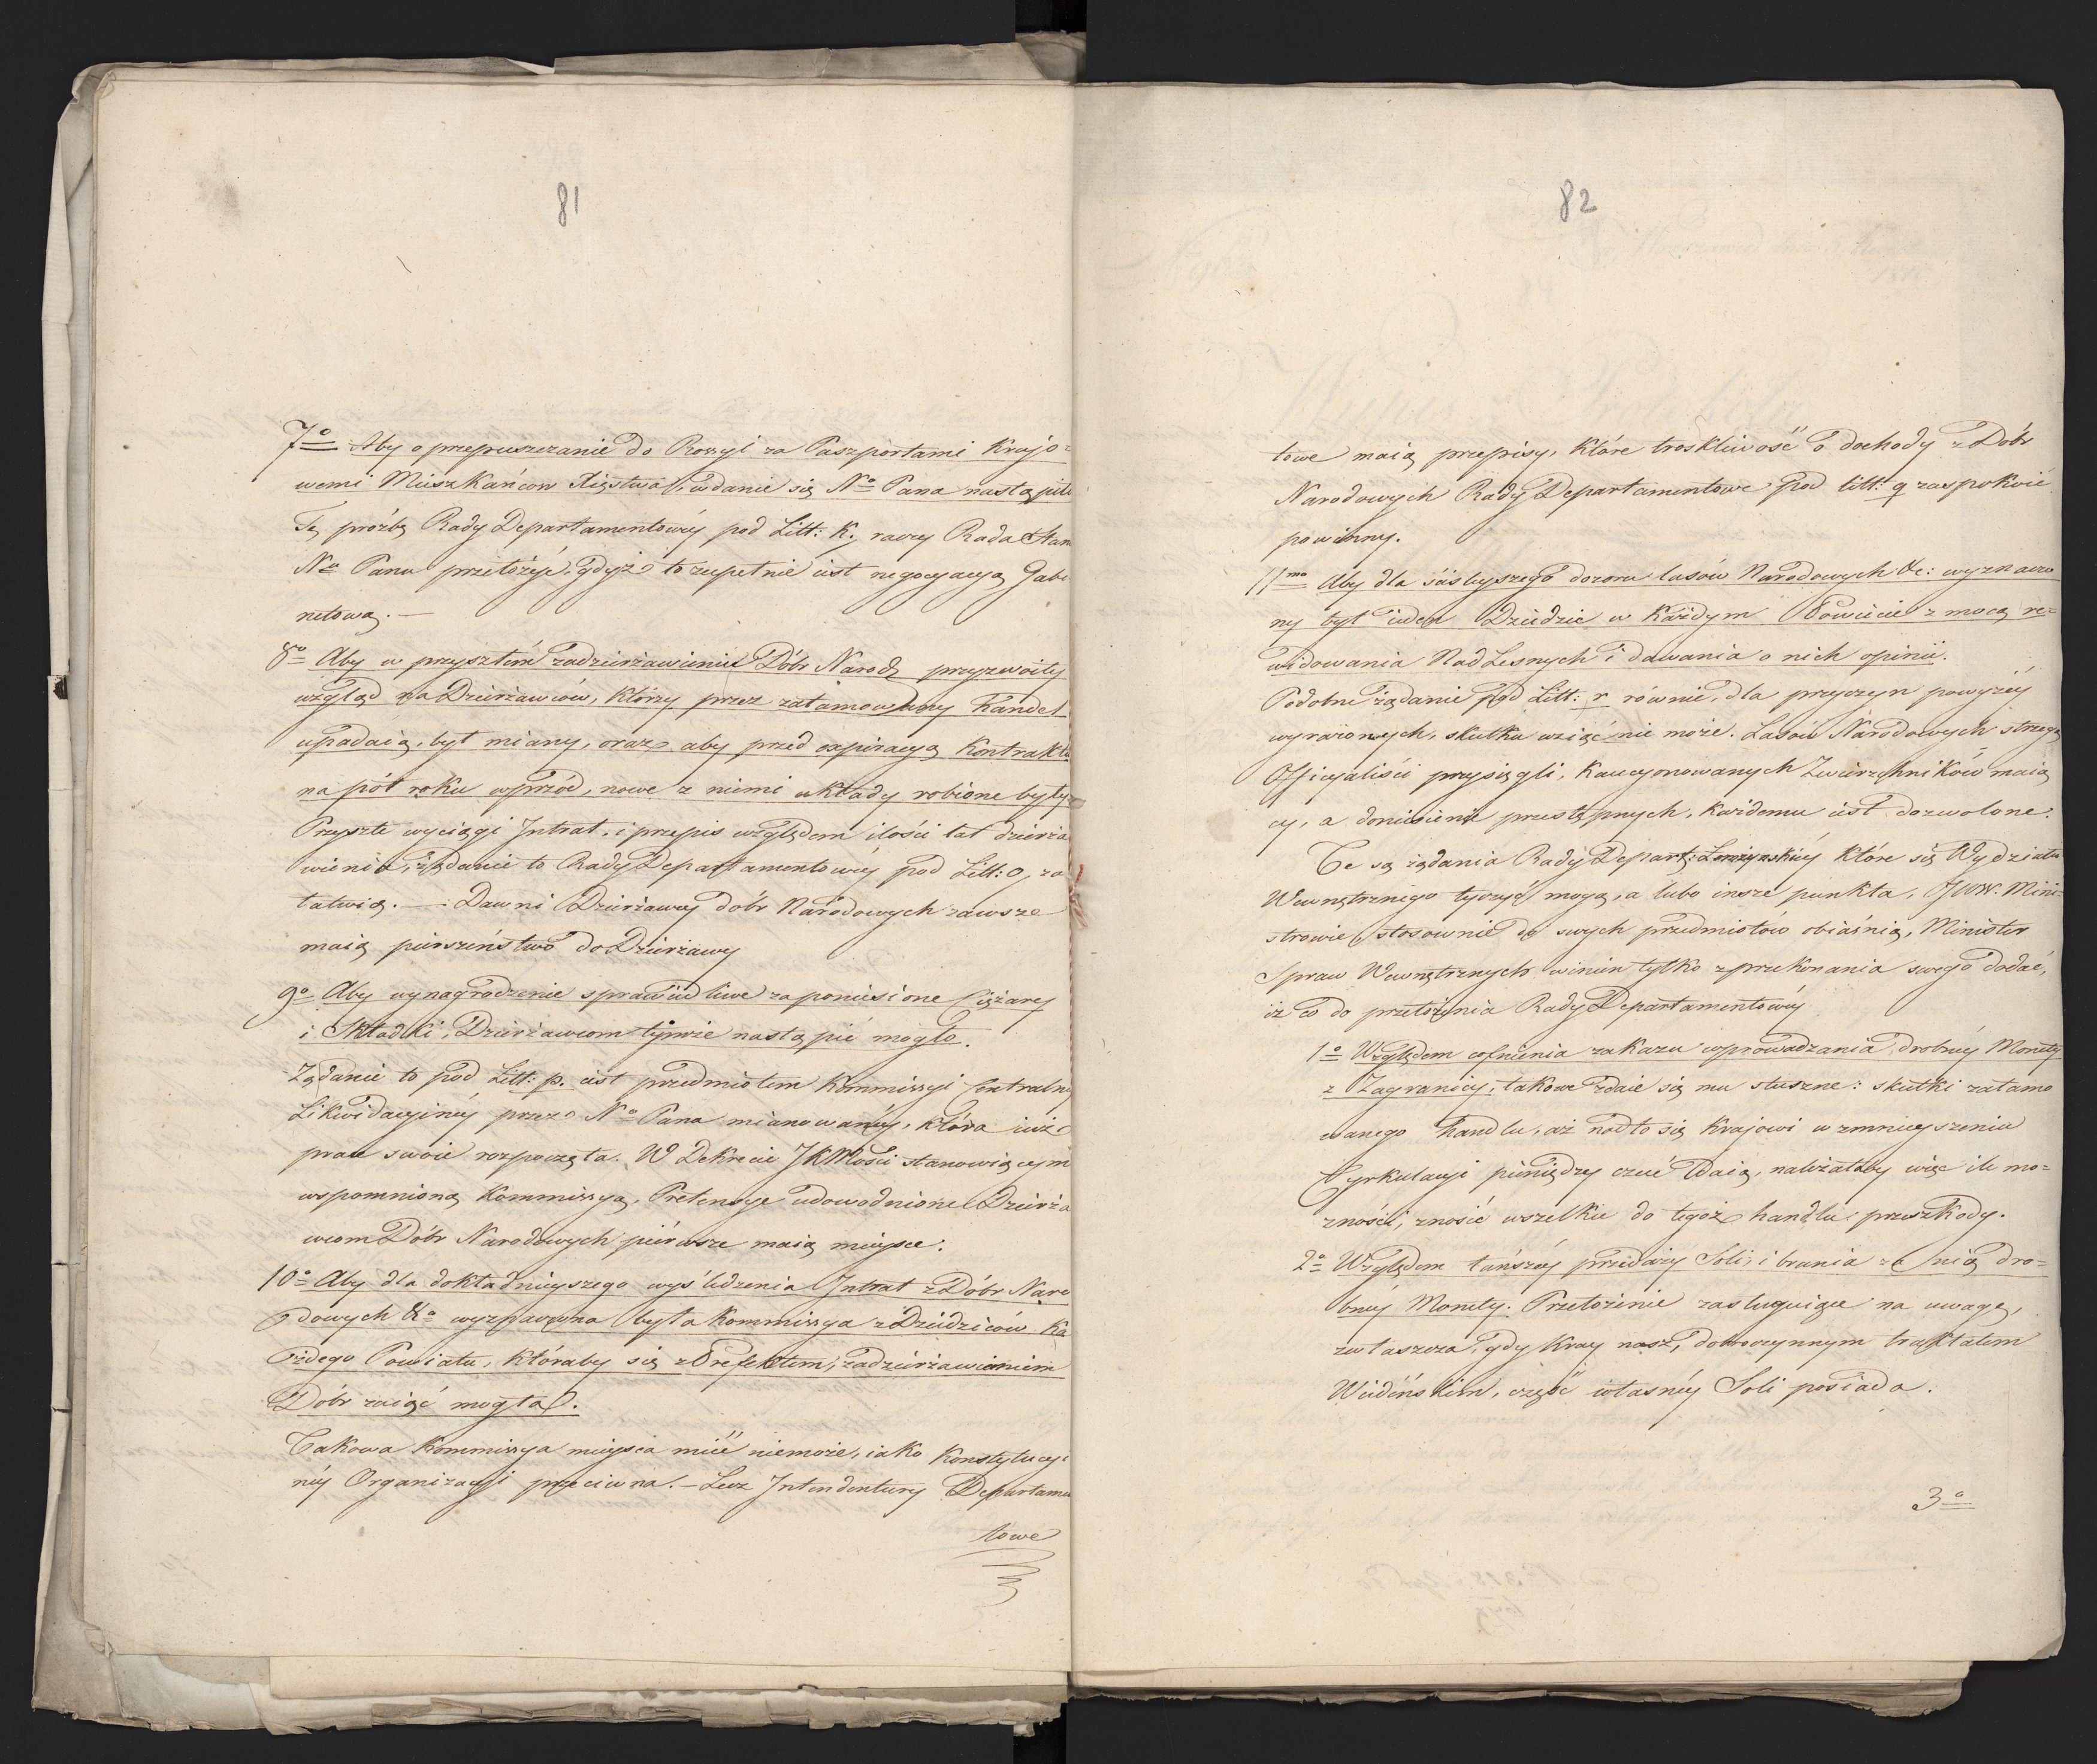 81
7o Aby o przepuszczanie do Rossyi za Paszportami Krajo=
wemi Mieszkańcow Xięstwa, udanie się No Pana nastąpiło
Tę prośbę Rady Departamentowéy pod Litt: K, raczy Rada Stanu
No Panu przełożyć, gdyż to zupełnie iest negocyacyą Gabi
netową. —
8o Aby w przyszłém zadzierżawieniu Dóbr Narod: przyzwoity
wzgląd na Dzierżawców, którzy przez zatamowany Handel
upadaią, był miany, oraz aby przed expiracyą Kontraktu
na pół roku wprzód, nowe z niemi układy robione były
Przyszłe wyciągi Intrat, i przepis względem ilości lat dzierża
wienia, żądanie to Rady Departamentowéy pod Litt: o, za
łatwią. — Dawni Dzierżawcy dóbr Narodowych zawsze
maią pierszeństwo do Dzierżawy
9o Aby wynagrodzenie sprawiedliwe za poniesione Ciężary
i Składki, Dzierżawcom tymże nastąpić mogło.
Żądanie to pod Litt: p. iest przedmiotem Kommissyi Centralnéy
Likwidacyinéy przez No Pana mianowanéy, która iuż
prace swoie rozpoczęła. W Dekrecie JKMości stanowiącym
wspomnioną Kommissyą, Pretensye udowodnione Dzierża
wcom Dóbr Narodowych piérwsze maią mieysce.
10o Aby dla dokładnieyszego wyśledzenia Intrat z Dóbr Naro
dowych &a wyznaczona była Kommissya z Dziedziców ka
żdego Powiatu, któraby się z Prefektem, zadzierżawieniem
Dóbr zaiąć mogła.
Takowa Kommissya mieysca mieć niemoże, iako Konstytucyi
néy Organizacyi przeciwna. — Lecz Intendentury Departamen
towe
82
towe maią przepisy, które troskliwość o dochody z Dóbr
Narodowych Rady Departamentowe pod litt: q zaspokoić
powinny.
11mo Aby dla ściśleyszego dozoru lasów Narodowych &c: wyznaczo
ny był ieden Dziedzic w Każdym Powiecie z mocą re=
widowania Nad Lesnych i dawania o nich opinii.
Podobne żądanie pod Litt: r równie, dla przyczyn powyżéy
wyrażonych, skutku wziąć nie może. Lasów Narodowych strzegą
Officyaliści przysięgli, kaucyonowanych Zwierzchników maią
cy, a doniesienie przestępnych, każdemu iest dozwolone.
Te są żądania Rady Depart: Łomżyńskiéy które się Wydziału
Wewnętrznego tyczyć mogą, a lubo insze punkta, JWW. Mini=
strowie stosownie do swych przedmiotów obiaśnią, Minister
Spraw Wewnętrznych winien tylko z przekonania swego dodać,
iż co do przełożenia Rady Departamentowéy
1o Względem cofnienia zakazu wprowadzania drobnéy Monety
z Zagranicy, takowe zdaie się mu słuszne: skutki zatamo
wanego handlu, aż nadto się Krajowi w zmnieyszeniu
Cyrkulacyi pieniędzy czuć daią, należałoby więc ile mo=
zności, znosić wszelkie do tegoż handlu przeszkody.
2o Względem tańszéy przedaży Soli, i brania za nią dro=
bnéy Monety. Przełożenie zasługuiące na uwagę,
zwłaszcza, gdy Kray nasz, dobroczynnym traktatem
Wiedeńskim, część własnéy Soli posiada.
3o